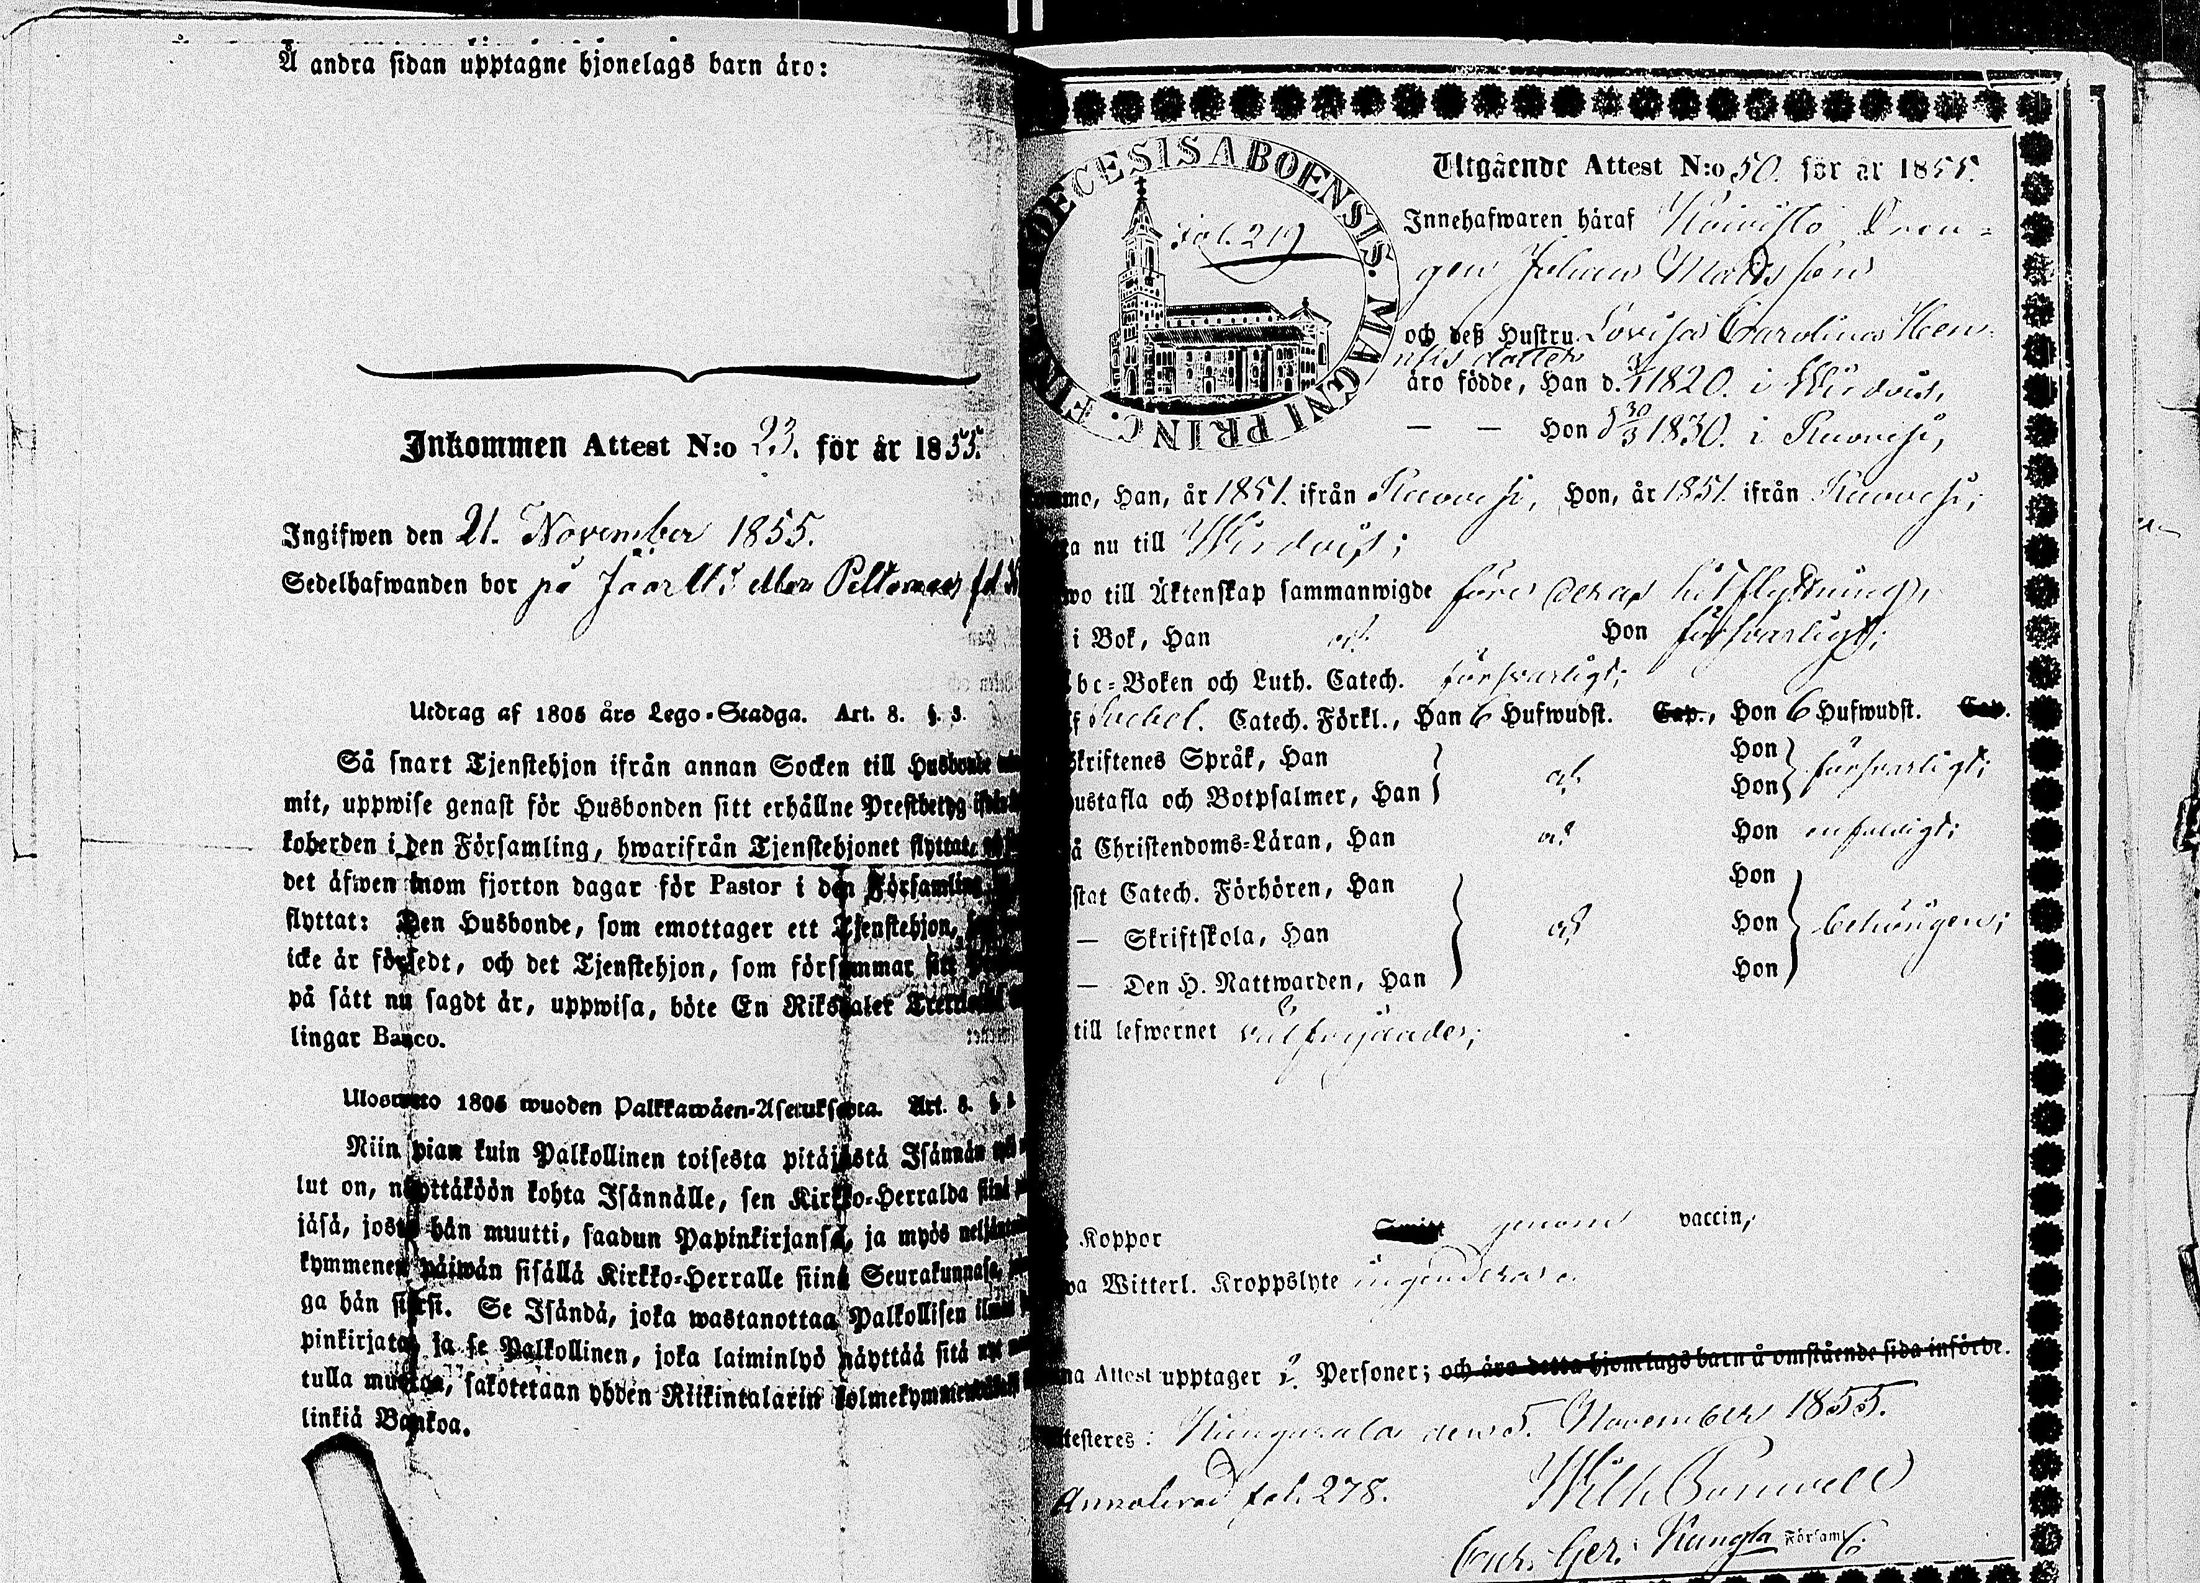 Å andra sidan upptagne hjonelags barn äro:
Inkommen Attest N:o 23. för år 1855.
Ingifwen den 21. November 1855.
Sedelhafwanden bor på
Utdrag af 1805 års Lego-Stadga. Art. 8. §. 3.
Så snart Tjenstehjon ifrån annan Socken till Husbonde
mit, uppwise genast för Husbonden sitt erhållne Prestbetyg
koherden i den Församling, hwarifrån Tjenstehjonet flyttat,
det äfwen inom fjorton dagar för Pastor i den Församling,
flyttat: Den Husbonde, som emottager ett Tjenstehjon,
icke är försedt, och det Tjenstehjon, som försummar sitt
på sätt nu sagdt är, uppwisa, böte En Riksdaler
lingar Banco.
Ulosweto 1805 wuoden Palkkawäen-Asetuksesta. Art. 8. §
Niin pian kuin Palkollinen toisesta pitäjästä Isännän
lut on, näyttäköön kohta Isännälle, sen Kirkko-Herralda siinä
jäsä, josta hän muutti, saadun Papinkirjansa, ja myös
kymmenen päiwän sisällä Kirkko-Herralle siinä Seurakunnasa,
ga hän siirsi. Se Isändä, joka wastanottaa Palkollisen ilman
pinkirjata, ja se Palkollinen, joka laiminlyö näyttää sitä nyt
tulla muotoa, sakotetaan yhden Riikintalarin
linkiä Bankoa.
DIOECESIS ABOENSIS. MAGNI PRINC. FINL.
Fol. 219
Utgående Attest N:o 50. för år 1855.
Innehafwaren häraf Koivisto Dren-
gen Johan Mattsson
och deß Hustru Lovisa Carolina Hen-
riks dotter
äro födde, Han d. 1820. i Wirdois,
— — Hon d 30/3 1830. i Ruovesi,
mo, Han, år 1851. ifrån Ruovesi, Hon, år 1851. ifrån Ruovesi;
ta nu till Wirdois;
wo till Äktenskap sammanwigde före deras hitflyttning;
i Bok, Han och Hon försvarligt;
Abc-Boken och Luth. Catech. försvarligt;
f Svebel. Catech. Förkl., Han 6 Hufwudst. Cap., Hon 6 Hufwudst. Cap.
Skriftenes Språk, Han Hon
och försvarligt;
Hustafla och Botpsalmer, Han Hon
å Christendoms-Läran, Han och Hon enfaldigt;
istat Catech. Förhören, Han Hon
— Skriftskola, Han och Hon behörigen;
— Den H. Nattwarden, Han Hon
till lefwernet välfrejdade;
Koppor genom vaccin,
wa Witterl. Kroppslyte ingendera.
na Attest upptager 2. Personer; och äro detta hjonelags barn å omstående sida införde.
testeres: Kangasala den 5. November 1855.
Annoterad fol. 278. Wilh.
Församl